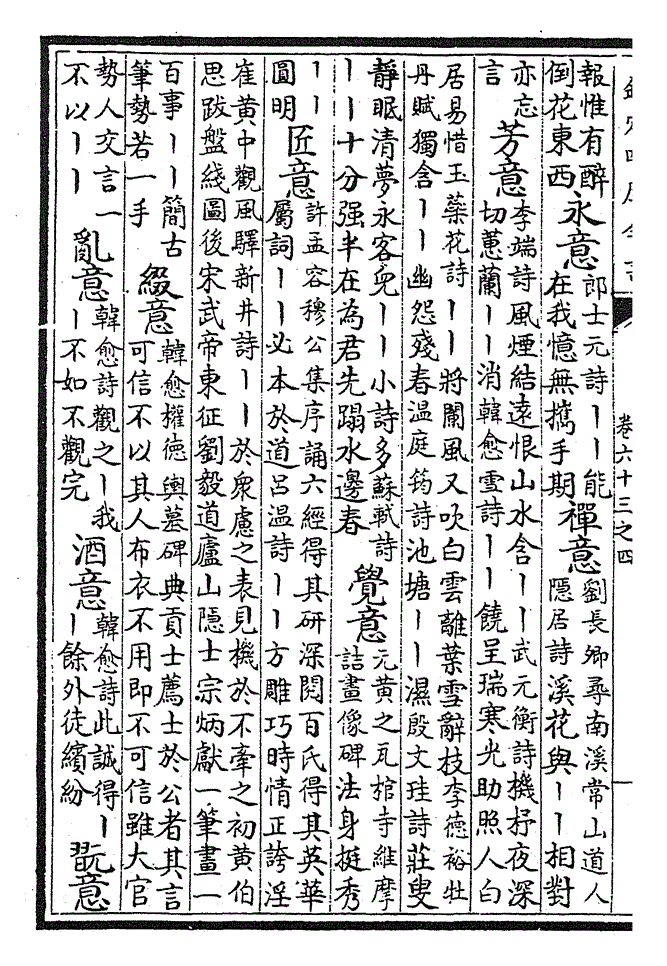 卷六十三之四
報惟有醉
倒花東西
永意
郎士元詩｜｜能
在我憶無攜手期
禪意
劉長卿尋南溪常山道人
隱居詩溪花與｜｜相對
亦忘
言
芳意
李端詩風煙結遠恨山水含｜｜武元衡詩機杼夜深
切蕙蘭｜｜消韓愈雪詩｜｜饒呈瑞寒光助照人白
居易惜玉蘂花詩｜｜將闌風又吹白雲離葉雪辭枝李德裕牡
丹賦獨含｜｜幽怨殘春温庭筠詩池塘｜｜濕殷文珪詩莊叟
静眠清夢永客兒｜｜小詩多蘇軾詩
｜｜十分强半在為君先蹋水邊春
覺意
元黄之瓦棺寺維摩
詰畫像碑法身挺秀
｜｜
圓明
匠意
許孟容穆公集序誦六經得其研深閱百氏得其英華
屬詞｜｜必本於道吕温詩｜｜方雕巧時情正誇淫
崔黄中觀風驛新井詩｜｜於衆慮之表見機於不牽之初黄伯
思跋盤綫圖後宋武帝東征劉毅道廬山隱士宗炳獻一筆畫一
百事｜｜簡古
筆勢若一手
綴意
韓愈權德輿墓碑典貢士薦士於公者其言
可信不以其人布衣不用即不可信雖大官
勢人交言一
不以｜｜
亂意
韓愈詩觀之｜我
｜不如不觀完
酒意
韓愈詩此誠得｜
｜餘外徒繽紛
翫意